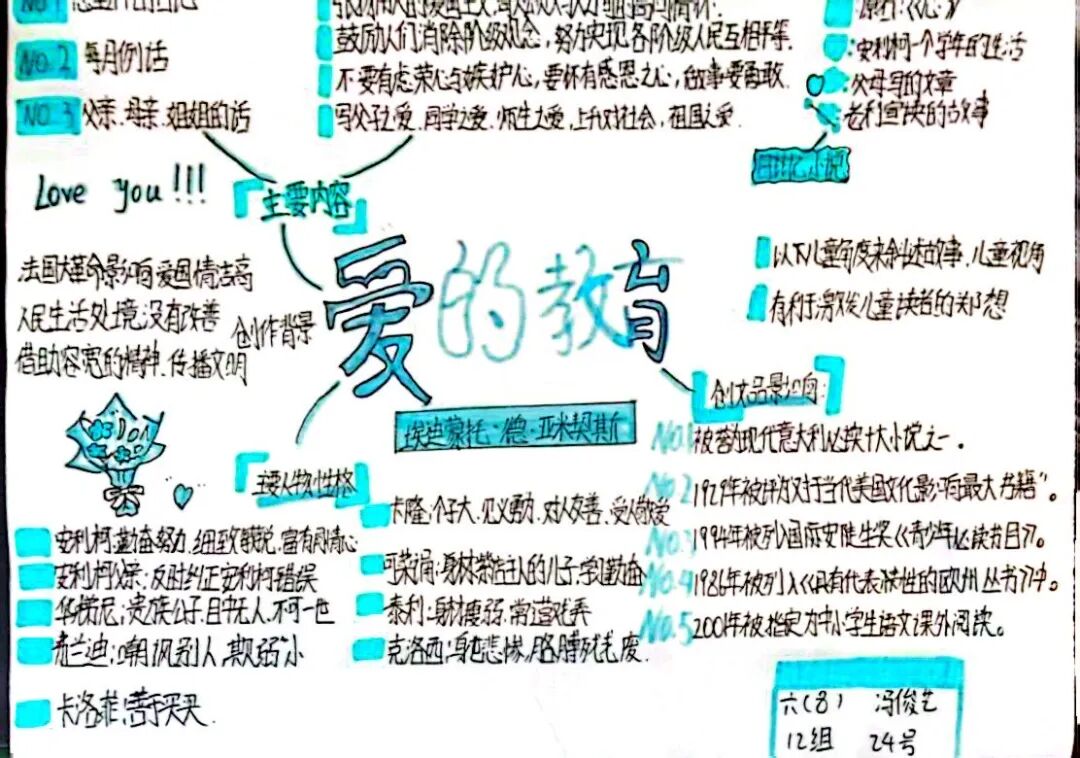 NO.2 每月例话
NO.3 父亲、母亲、姐姐的话
鼓励人们消除阶级观念，努力实现各阶级人民互相平等.
不要有虚荣心与嫉妒心，要怀有感恩之心，做事要勇敢.
写父子之爱、同学之爱、师生之爱，上升对社会，祖国之爱.
安利柯一个学年的生活
父母写的文章
老师宣读的故事
日记小说
Love you!!!
主要内容
爱的教育
埃迪蒙托·德·亚米契斯
法国大革命影响爱国情志高
人民生活处境没有改善
借助容宽的精神.传播文明
创作背景
以儿童角度来叙述故事.儿童视角
有利于激发儿童读者的思想
作品影响:
No.1 被誉为现代意大利必读十大小说之一.
No.2 1929年被评为对于当代美国文化影响最大书籍”。
No.3 1994年被列入国际安徒生奖《青少年必读书目》。
No.4 1986年被列入《具有代表性的欧洲丛书》中。
No.5 2001年被指定为中小学生语文课外阅读。
主要人物性格
安利柯:勤奋努力.细致敏锐.富有同情心
安利柯父亲:反时纠正安利柯错误
华梯尼:贵族公子.目中无人.不可一世
弗兰迪:嘲讽别人.欺弱小
卡洛菲:善于买卖
卡隆:个子大.见义勇为.对人友善、受人敬爱
可莱谛:身材柴店主人的儿子:学习勤奋
泰利:身材瘦弱.常遭戏弄
克洛西:身世悲惨.胳膊残废.
六(8) 冯俊艺
12组 24号